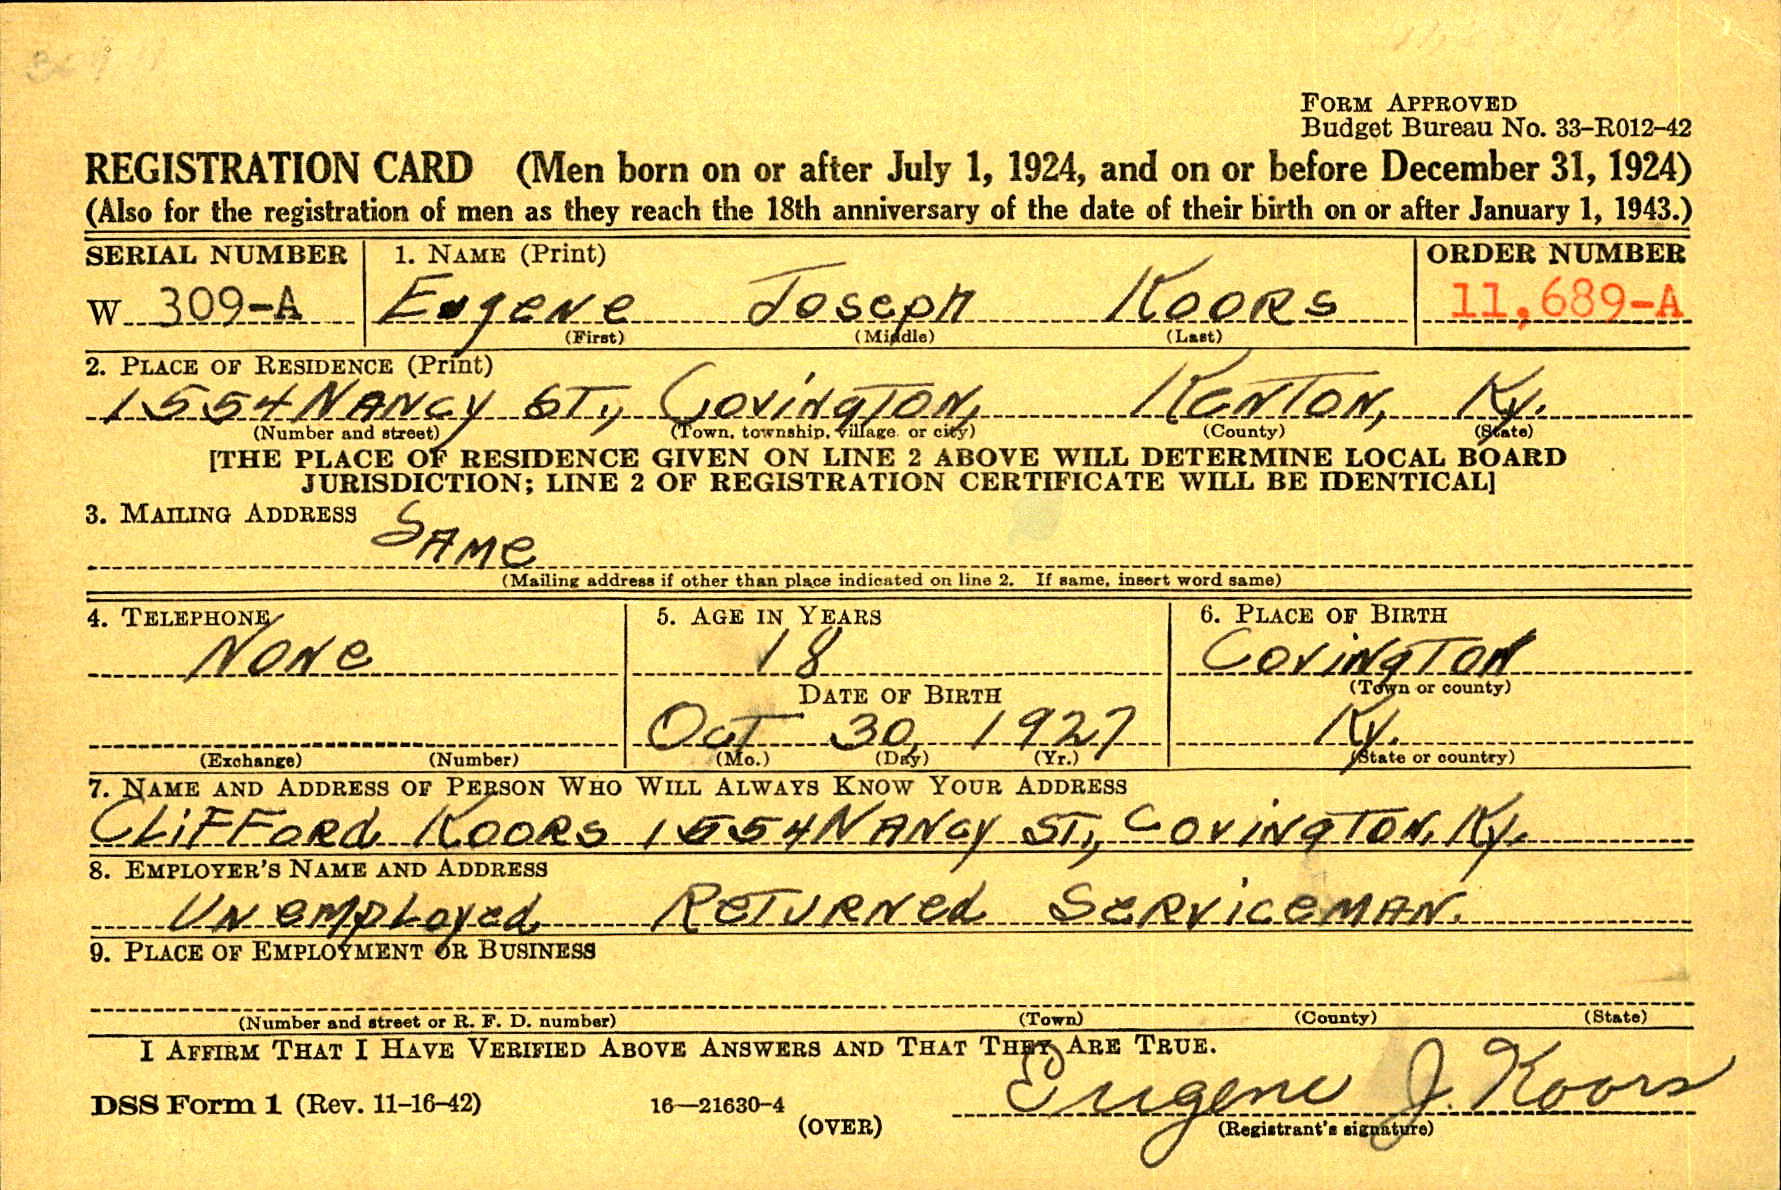 FORM APPROVED
Budget Bureau No. 33-R012-42
REGISTRATION CARD (Men born on or after July 1, 1924, and on or before December 31, 1924)
(Also for the registration of men as they reach the 18th anniversary of the date of their birth on or after January 1, 1943.)
SERIAL NUMBER 1. NAME (Print) ORDER NUMBER
W 309-A Eugene Joseph Koors 11,689-A
(First) (Middle) (Last)
2. PLACE OF RESIDENCE (Print)
1554 Nancy St., Covington, Kenton, Ky.
(Number and street) (Town, township, village, or city) (County) (State)
[THE PLACE OF RESIDENCE GIVEN ON LINE 2 ABOVE WILL DETERMINE LOCAL BOARD
JURISDICTION; LINE 2 OF REGISTRATION CERTIFICATE WILL BE IDENTICAL]
3. MAILING ADDRESS
Same
(Mailing address if other than place indicated on line 2. If same, insert word same)
4. TELEPHONE 5. AGE IN YEARS 6. PLACE OF BIRTH
None 18 Covington
DATE OF BIRTH (Town or county)
Oct 30, 1927 Ky.
(Exchange) (Number) (Mo.) (Day) (Yr.) (State or country)
7. NAME AND ADDRESS OF PERSON WHO WILL ALWAYS KNOW YOUR ADDRESS
Clifford Koors 1554 Nancy St., Covington, Ky.
8. EMPLOYER'S NAME AND ADDRESS
Unemployed Returned Serviceman.
9. PLACE OF EMPLOYMENT OR BUSINESS
(Number and street or R. F. D. number) (Town) (County) (State)
I AFFIRM THAT I HAVE VERIFIED ABOVE ANSWERS AND THAT THEY ARE TRUE.
DSS Form 1 (Rev. 11-16-42) 16—21630-4 Eugene J. Koors
(OVER) (Registrant's signature)